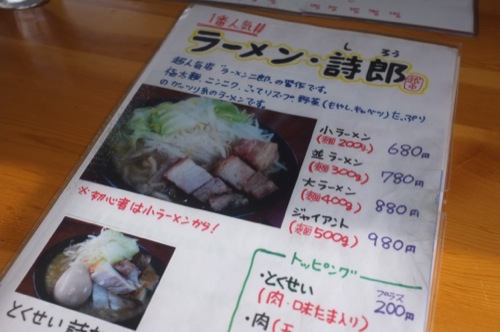 1番人気!!
ラーメン・詩郎
し ろう
超人気店 "ラーメン二郎"の習作です。
極太麺、ニンニク、こってりスープ、野菜(もやし、キャベツ)たっぷり
のガッツリ系ラーメンです。
小ラーメン
(麺200g) 680円
並ラーメン
(麺300g) 780円
大ラーメン
(麺400g) 880円
ジャイアント
(麺500g) 980円
※初心者は小ラーメンから!
トッピング
・とくせい プラス
(肉・味たま入り) 200円
・肉
とくせい 詩